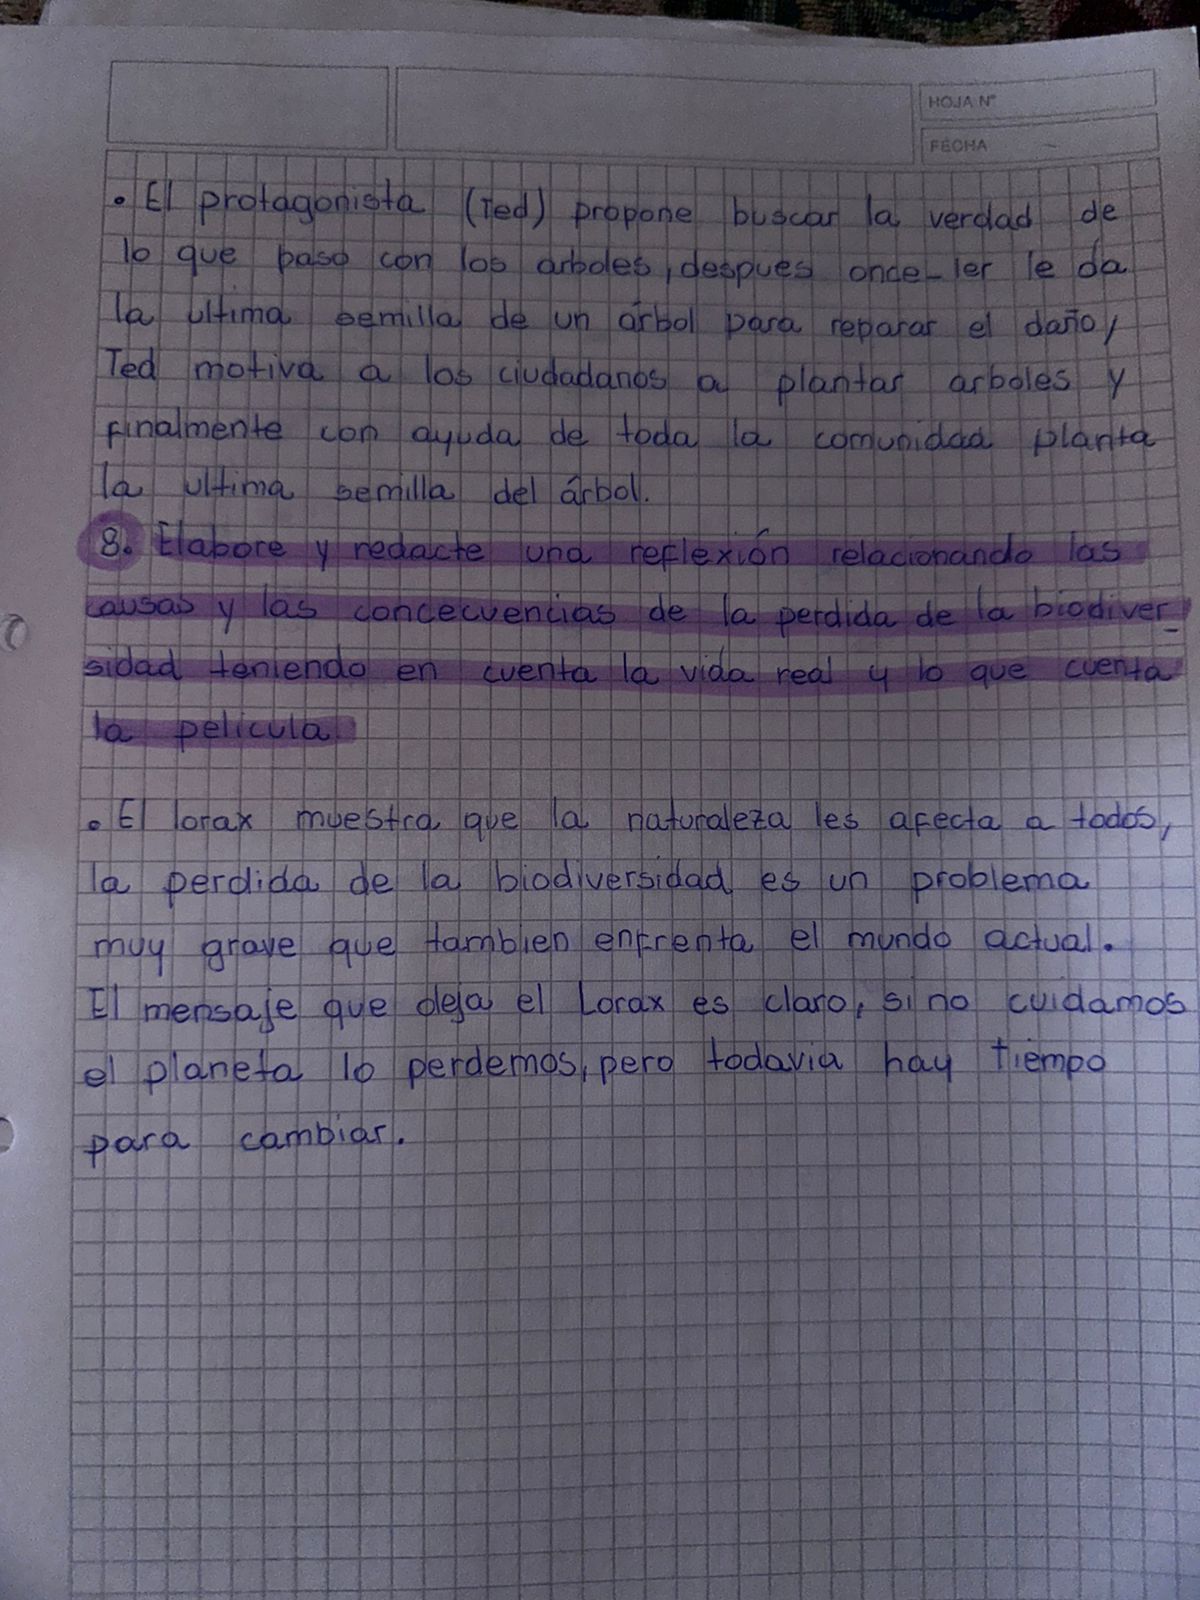 HOJA N°
FECHA
• El protagonista (Ted) propone buscar la verdad de
lo que paso con los arboles, despues once-ler le da
la ultima semilla de un árbol para reparar el daño,
Ted motiva a los ciudadanos a plantar arboles y
finalmente con ayuda de toda la comunidad planta
la ultima semilla del árbol.
8. Elabore y redacte una reflexión relacionando las
causas y las concecuencias de la perdida de la biodiver_
sidad teniendo en cuenta la vida real y lo que cuenta
la pelicula.
• El lorax muestra que la naturaleza les afecta a todos,
la perdida de la biodiversidad es un problema
muy grave que tambien enfrenta el mundo actual.
El mensaje que deja el Lorax es claro, si no cuidamos
el planeta lo perdemos, pero todavia hay tiempo
para cambiar.